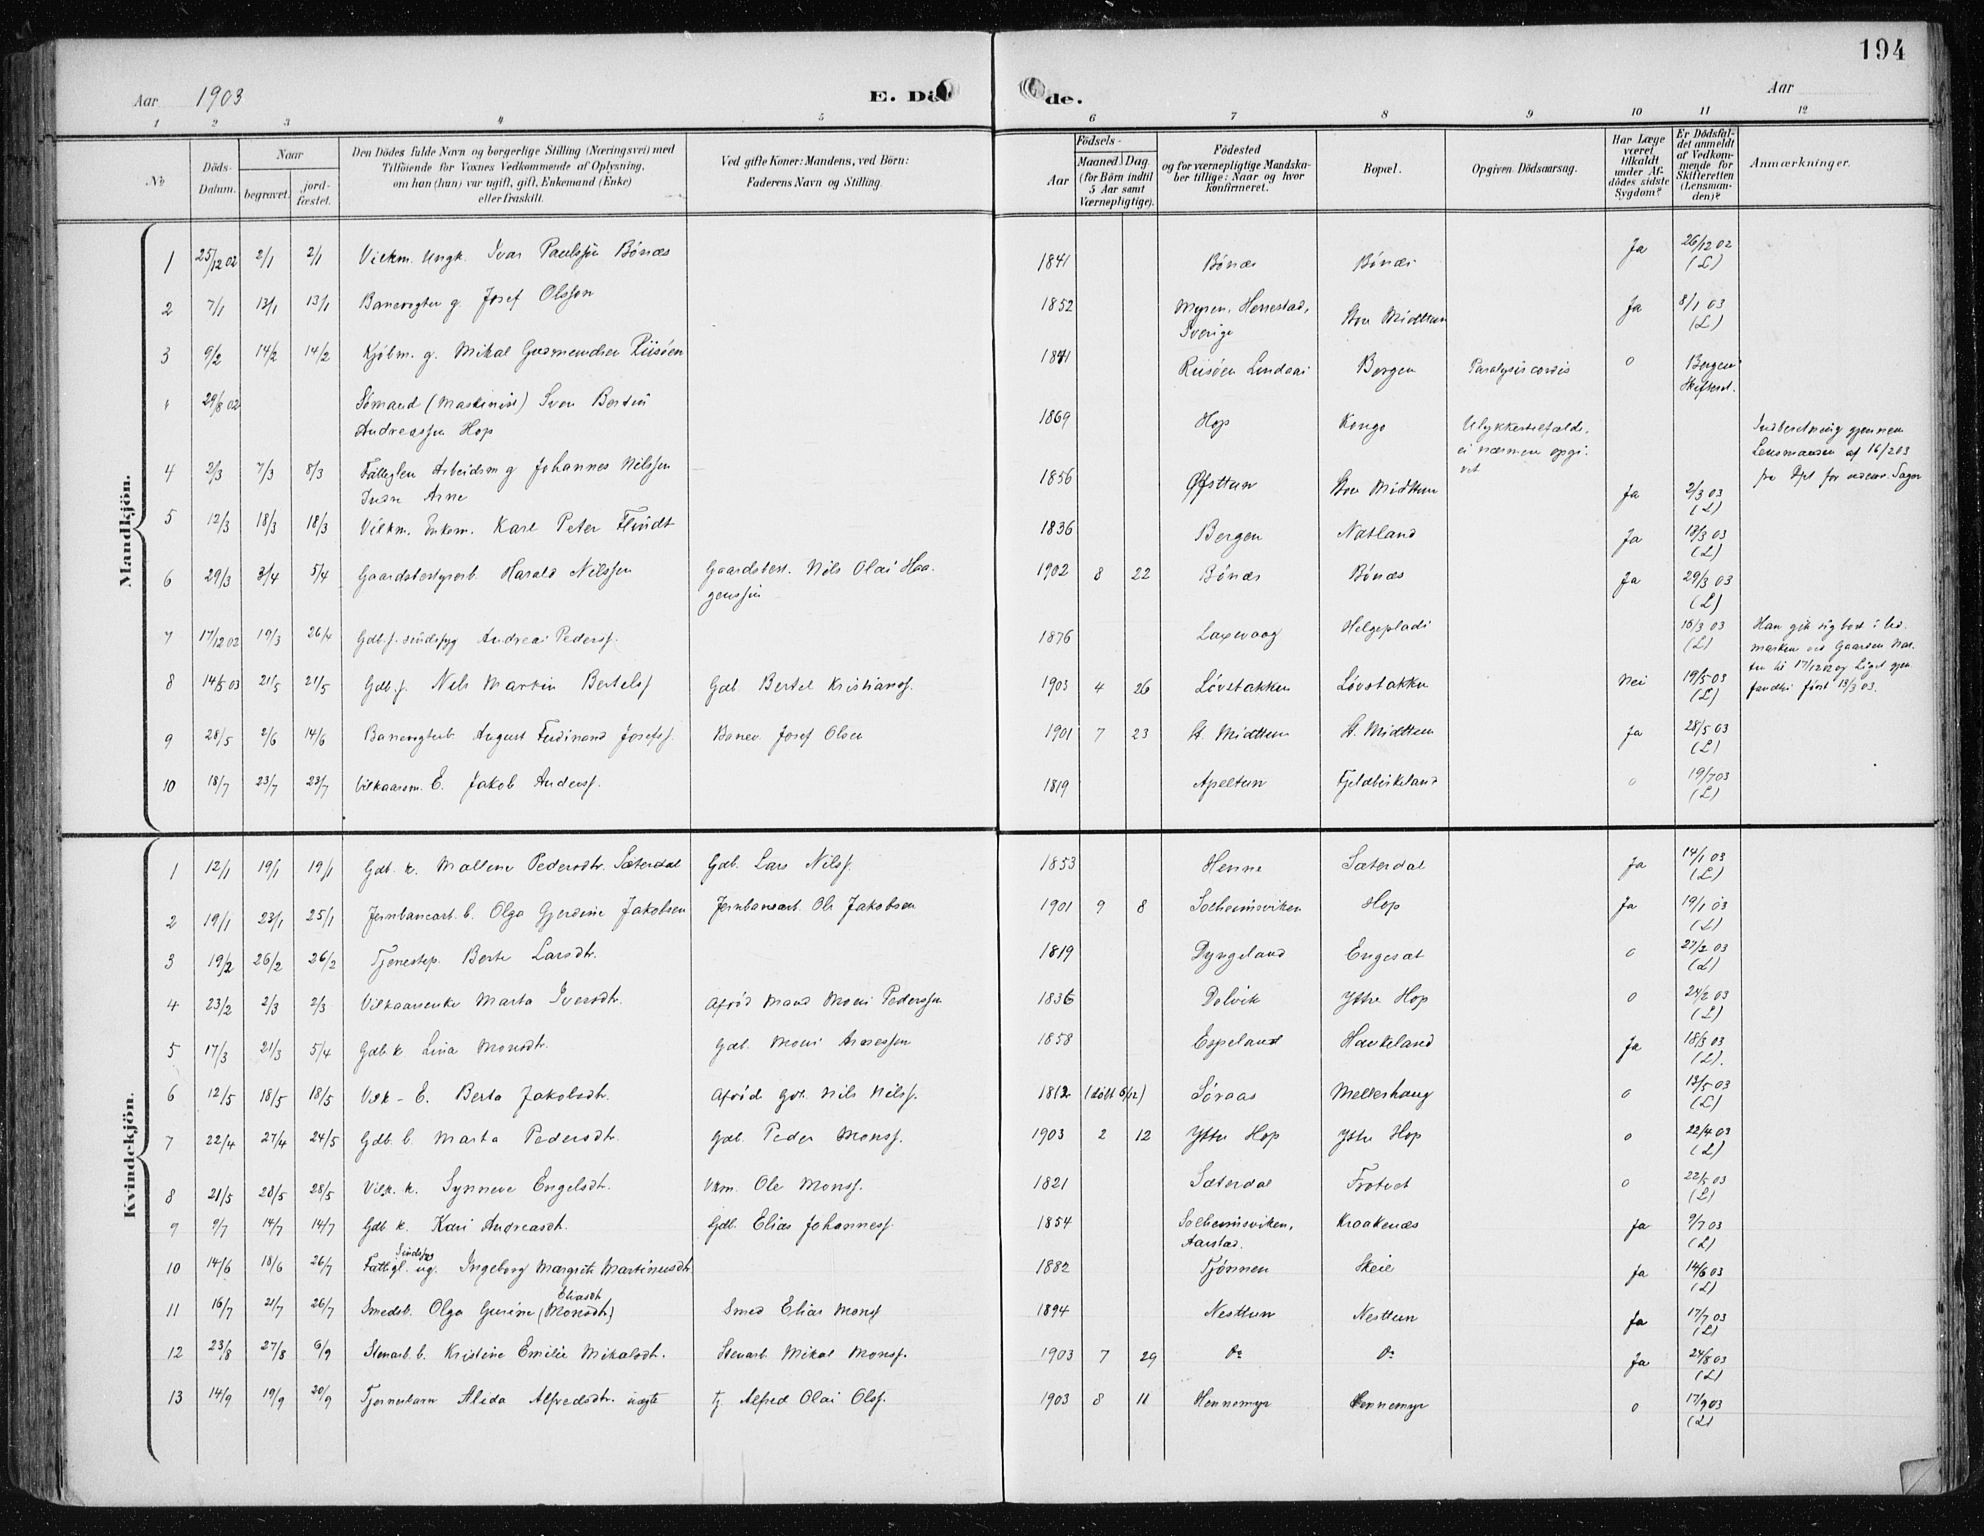 194
Aar 1903
E. Dö
de.
Aar
1 2 3 4 5 6 7 8 9 10 11 12
No
Döds-Datum.
Naar
begravet.
jord-fæstet.
Den Dödes fulde Navn og borgerlige Stilling (Næringsvei) med
Tilföiende for Voxnes Vedkommende af Oplysning,
om han (hun) var ugift, gift, Enkemand (Enke)
eller fraskilt.
Ved gifte Koner: Mandens, ved Börn:
Faderens Navn og Stilling.
Födsels-
Aar
Maaned Dag
(for Börn indtil
5 Aar samt
Værnepligtige).
Födested
og for værnepligtige Mandska-
ber tillige: Naar og hvor
konfirmeret.
Bopæl.
Opgiven Dödsaarsag.
Har Læge
været
tilkaldt
under Af-
dödes sidste
Sygdom?
Er Dödsfal-
det anmeldt
af Vedkom-
mende for
Skifteretten
(Lensman-
den)?
Anmærkninger.
Mandkjön.
1 25/12 02 2/1 2/1 Vilkm. Ungk. Ivar Paulssön Bönæs 1841 Bönæs Bönæs Ja 26/12 02 (L)
2 7/1 13/1 13/1 Banevogter g. Josef Olsson 1852 Myren, Herrestad, Sverige Store Midttun Ja 8/1 03 (L)
3 9/2 14/2 14/2 Kjöbm. g. Mikal Riisöen 1841 Riisöen Lindaas Bergen Paralysis cordis o Bergens Skifteret.
29/8 02 Sömand (Maskinist) Andreassen Hop 1869 Hop Kongo Ulykkestilfælde, ei nærmere opgivet Indberetning gjennem Lensmanden af 16/2 03
4 2/3 7/3 8/3 Arbeidsm g Johannes Nilssen 1856 Øvsttun Store Midttun Ja 2/3 03 (L)
5 12/3 18/3 18/3 Vilkm. Enkem. Karl Peter Flindt 1836 Bergen Natland Ja 13/3 03 (L)
6 29/3 3/4 5/4 Gaardsbestyrerb. Harald Nilssen Gaardsbest. Nils Olai Haagenssen 1902 8 22 Bönæs Bönæs Ja 29/3 03 (L)
7 17/12 02 19/3 26/4 Gdb.s. sindssyg Andreas Peders. 1876 Laxevaag Helgeplads 16/3 03 (L) Han gik sig bort i
8 14/5 03 21/5 21/5 Gdb.s. Nils Martin Bertels. Gdb. Bertel Kristians. 1903 4 26 Lövstakken Lövstakken Nei 19/5 03 (L) fandtes först 13/3 03.
9 28/5 2/6 14/6 Banevogterb. August Ferdinand Josefs. Banev. Josef Olsen 1901 7 23 St. Midttun St. Midttun Ja 28/5 03 (L)
10 18/7 23/7 23/7 Vilkaarsm. E. Jakob Anders. 1819 Apeltun Fjeldbirkeland o 19/7 03 (L)
Kvindekjön.
1 12/1 19/1 19/1 Gdb. k. Mallene Pedersdtr. Sæterdal Gdb. Lars Nils. 1853 Henne Sæterdal Ja 14/1 03 (L)
2 19/1 23/1 25/1 Jernbanearb. b. Olga Gjerdine Jakobsen Jernbanearb. Ole Jakobsen 1901 9 8 Solheimsviken Hop Ja 19/1 03 (L)
3 19/2 26/2 26/2 Tjenestep. Berte Larsdtr. 1819 Dyngeland Engesæt o 27/2 03 (L)
4 23/2 2/3 2/3 Vilkaarsenke Marta Iversdtr. Afdöd Mand Mons Pederssen 1836 Dolvik Ytre Hop o 24/2 03 (L)
5 17/3 21/3 5/4 Gdb. k. Lina Monsdtr. Gdb. Mons Arnessen 1858 Espeland Haukeland Ja 18/3 03 (L).
6 12/5 18/5 18/5 Vilk-E. Berta Jakobsdtr. Afdöd Gdb. Nils Nils. 1812 (döbt 6/12) Söraas Mellerhaug o 13/5 03 (L)
7 22/4 27/4 24/5 Gdb. b. Marta Pedersdtr. Gdb. Peder Mons. 1903 2 12 Ytre Hop Ytre Hop o 22/4 03 (L)
8 21/5 28/5 28/5 Vilk. k. Synneve Engelsdt. Vkm. Ole Mons. 1821 Sæterdal Frotvet o 22/5 03 (L)
9 9/7 14/7 14/7 Gdb k. Kari Andreasdt. Gdb. Elias Johannes. 1854 Solheimsviken, Aarstad. Kraakenæs Ja 9/7 03 (L)
10 14/6 18/6 26/7 Fattigl. Sindssyg ug. Ingeborg Margrete Martinusdt 1882 Tjönnen Skeie Ja 14/6 03 (L)
11 16/7 21/7 26/7 Smedsb. Olga Gurine (Monsdtr) Eliasdt Smed Elias Mons. 1894 Nesttun Nesttun Ja 17/7 03 (L)
12 23/8 27/8 6/9 Stenarb. b. Kristine Emilie Mikalsdtr. Stenarb. Mikal Mons. 1903 7 29 do do Ja 24/8 03 (L)
13 14/9 19/9 20/9 Tjenerbarn Alida Alfredsdtr. uægte Tj. Alfred Olai Ols. 1903 8 11 Hennemyr Hennemyr o 17/9 03 (L)